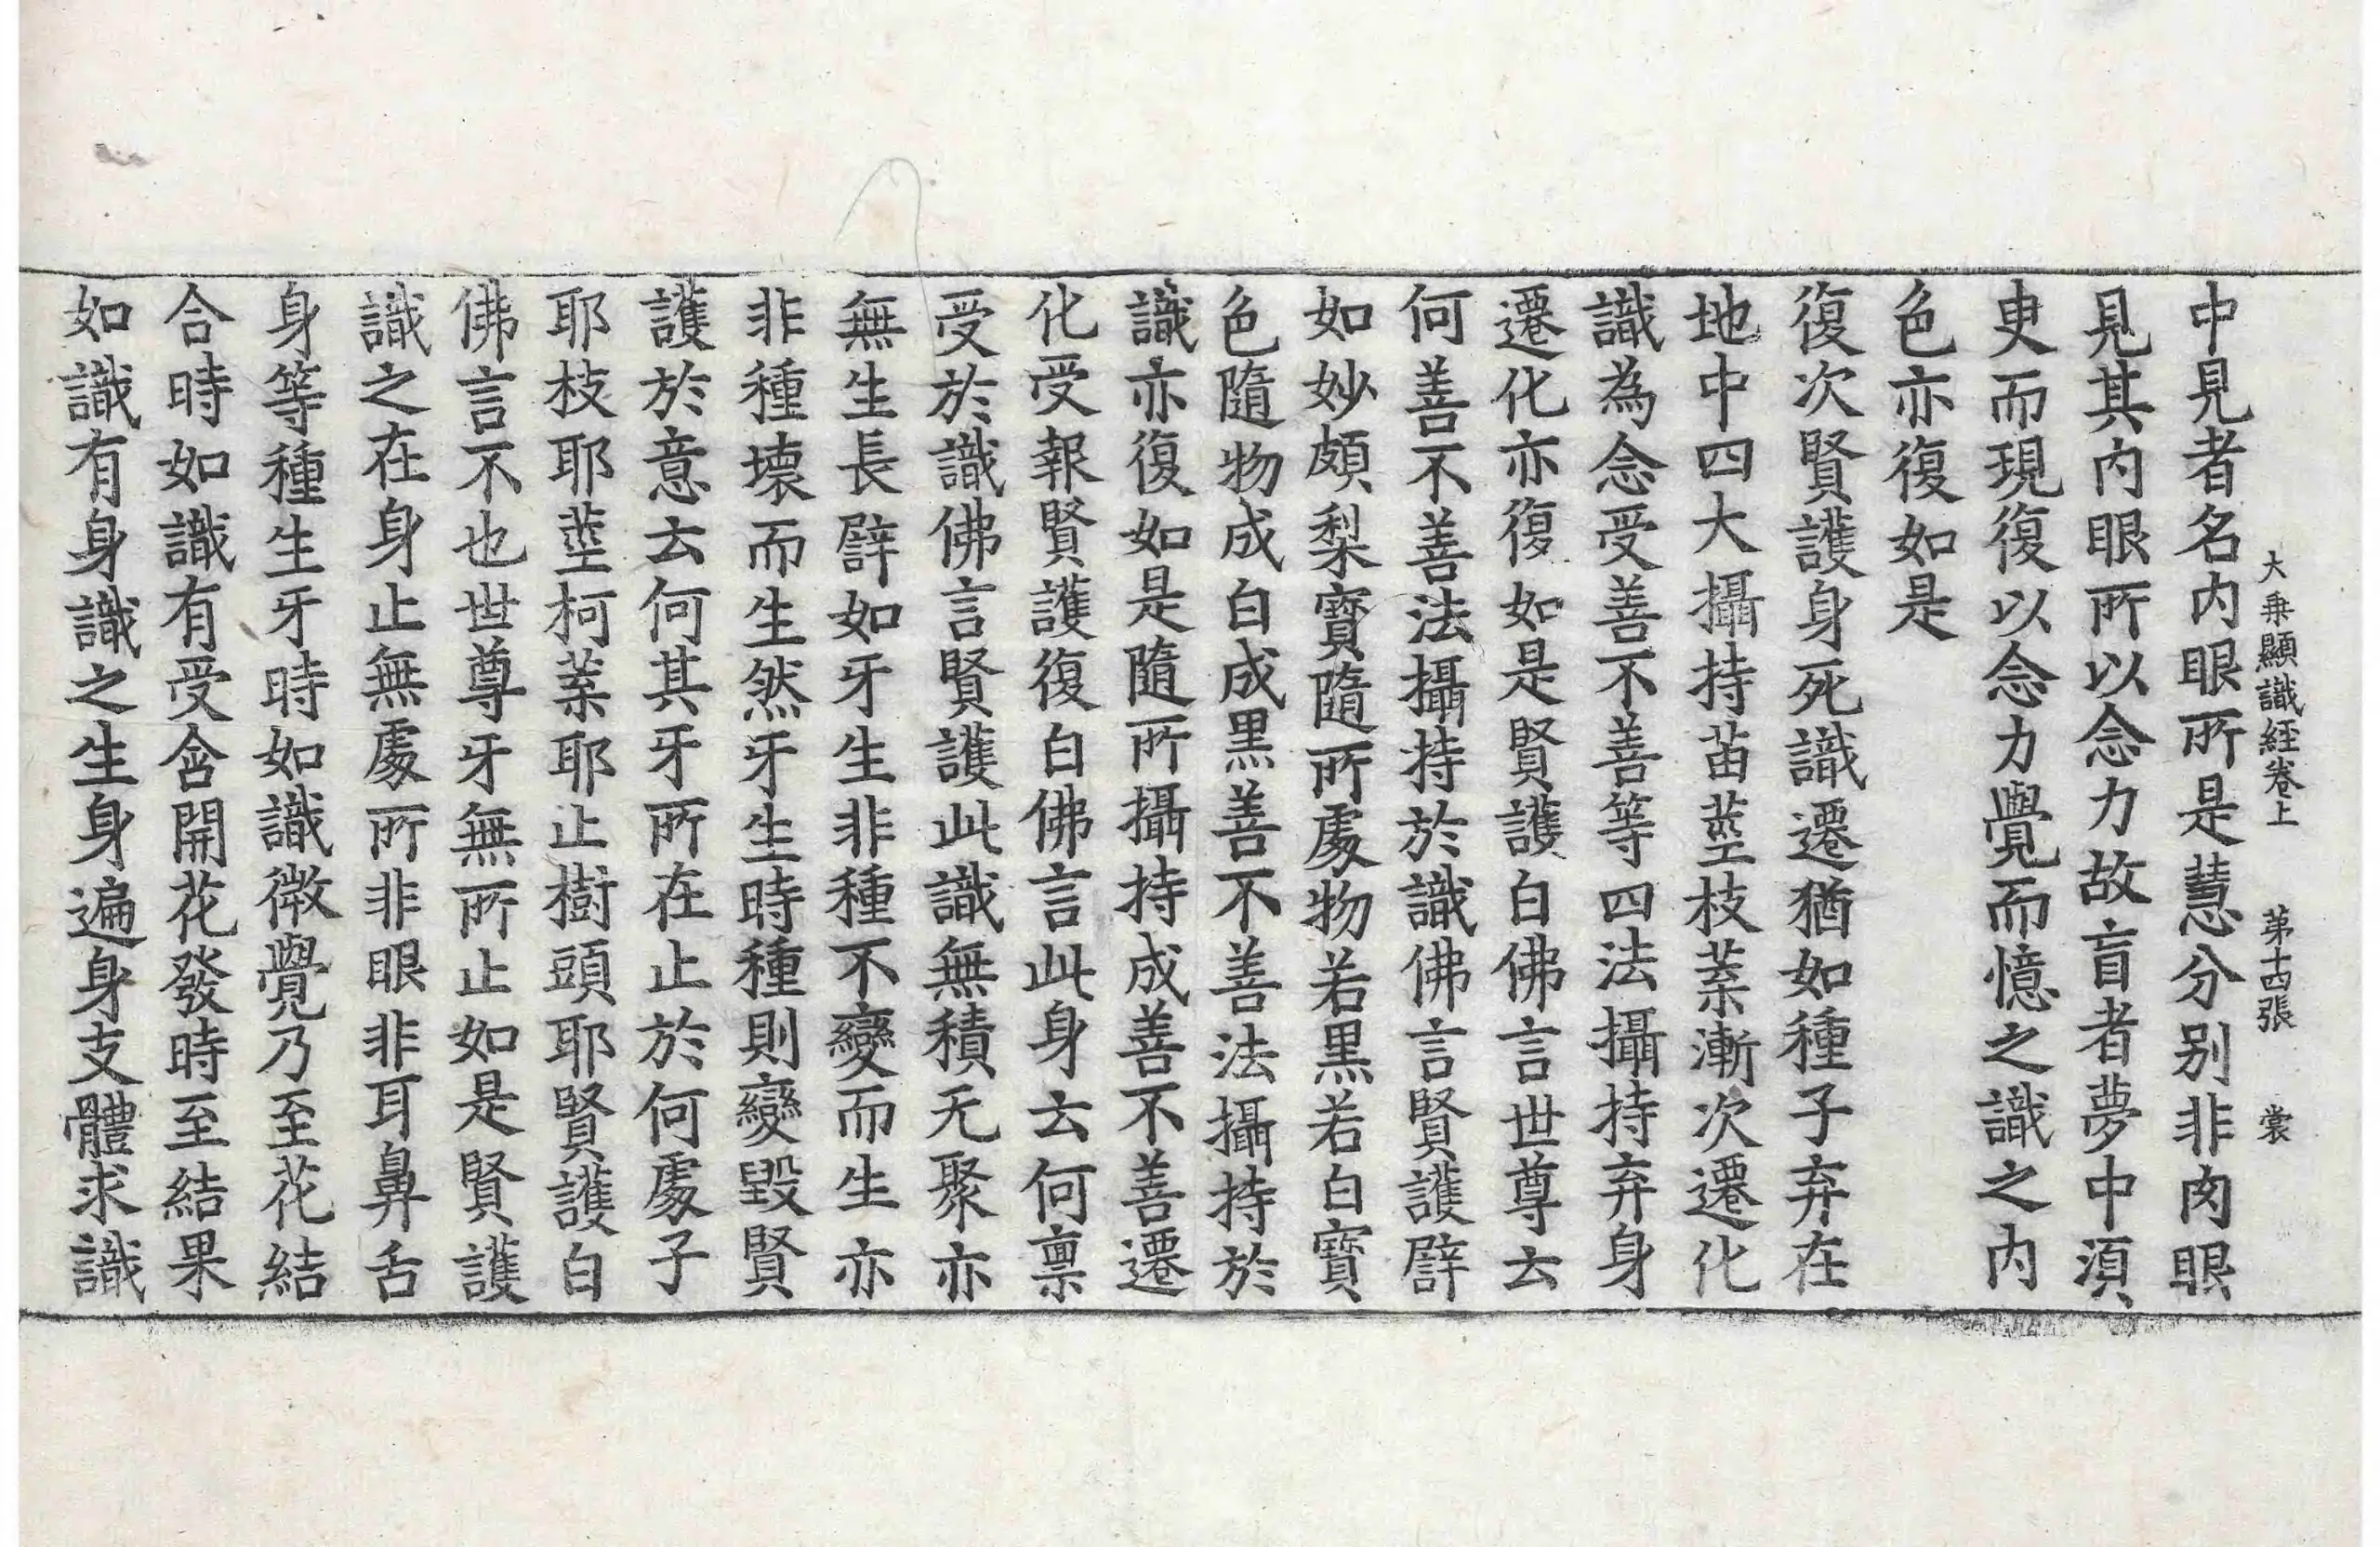 大乗顯識経卷上　第十四張　裳
中見者名内眼所是慧分別非肉眼
見其内眼所以念力故盲者夢中湏
臾而現復以念力覺而憶之識之内
色亦復如是
復次賢護身死識遷猶如種子弃在
地中四大攝持苗莖枝葉漸次遷化
識為念受善不善等四法攝持弃身
遷化亦復如是賢護白佛言世尊云
何善不善法攝持於識佛言賢護譬
如妙頗梨寶隨所處物若黒若白寶
色隨物成白成黒善不善法攝持於
識亦復如是隨所攝持成善不善遷
化受報賢護復白佛言此身云何禀
受於識佛言賢護此識無積无聚亦
無生長譬如牙生非種不變而生亦
非種壞而生然牙生時種則變毀賢
護於意云何其牙所在止於何處子
耶枝耶莖柯葉耶止樹頭耶賢護白
佛言不也世尊牙無所止如是賢護
識之在身止無處所非眼非耳鼻舌
身等種生牙時如識微覺乃至花結
合時如識有受含開花發時至結果
如識有身識之生身遍身支體求識